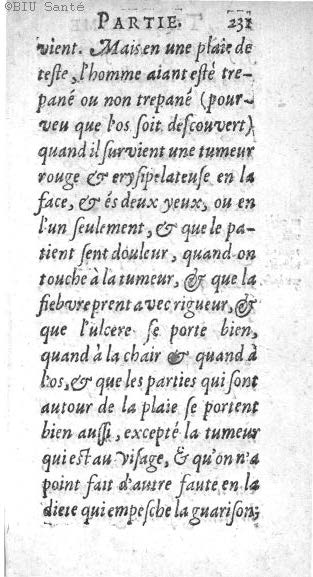 ©BIU Santé
PARTIE. 231
vient. Mais en une plaie de
teste, l'homme aiant esté tre-
pané ou non trepané (pour-
veu que l'os soit descouvert)
quand il survient une tumeur
rouge & erysipelateuse en la
face, & és deux yeux, ou en
l'un seulement, & que le pa-
tient sent douleur, quand on
touche à la tumeur, & que la
fiebvre prent avec rigueur, &
que l'ulcere se porte bien,
quand à la chair & quand à
l'os, & que les parties qui sont
autour de la plaie se portent
bien aussi, excepté la tumeur
qui est au visage, & qu'on n'a
point fait d'autre faute en la
diete qui empesche la guarison,